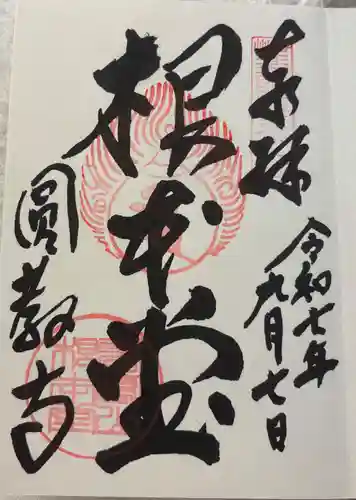 奉拝
令和七年
九月七日
根本堂
圓教寺